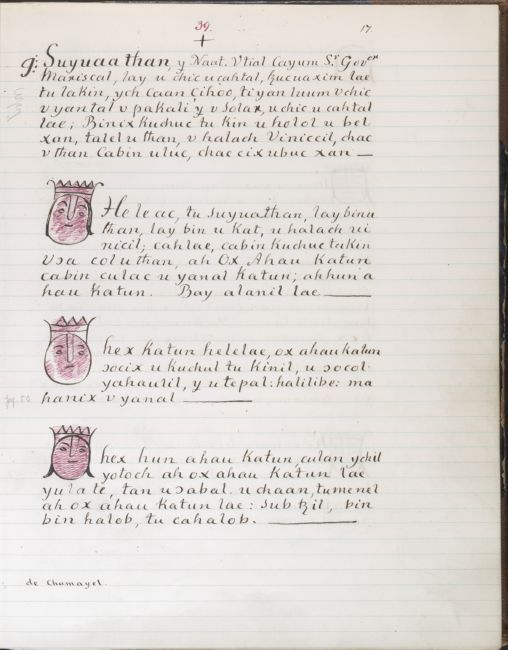 39.
17.
9: Suyuaathan, y Naat. Vtial Cayum Sr Govor
Mariscal, lay u chic u cahtal, hucuaxim lae
tu lakin, ych Caan Çihoo, tiyan luum v chic
v yantal v pakali y v solar, uchic u cahtal
lae; Binix kuchuc tu kin u holol u bel
xan, talel u than, v halach Viniccil, chac
v than Cabin uluc, chac cix ubuc xan
He le ac, tu suyuathan, lay binu
than, lay bin u kat, u halach vi
nicil; cahlae, cabin kuchuc tukin
Uɔa coluthan, ah Ox Ahau Katun
cabin culac u yanal Katun; ahhun a
hau Katun. Bay alanil lae
hex Katun helelae, ox ahau katun
ɔocix u kuchul tu kinil, u ɔocol
yahaulil, y u tepal: halilibe: ma
hanix v yanal
hex hun ahau Katun, culan yckil
yotoch ah ox ahau Katun lae
yula te, tan uɔabal u chaan, tumenel
ah ox ahau Katun lae: sub tzil, bin
bin halob, tu cahalob.
de Chumayel.